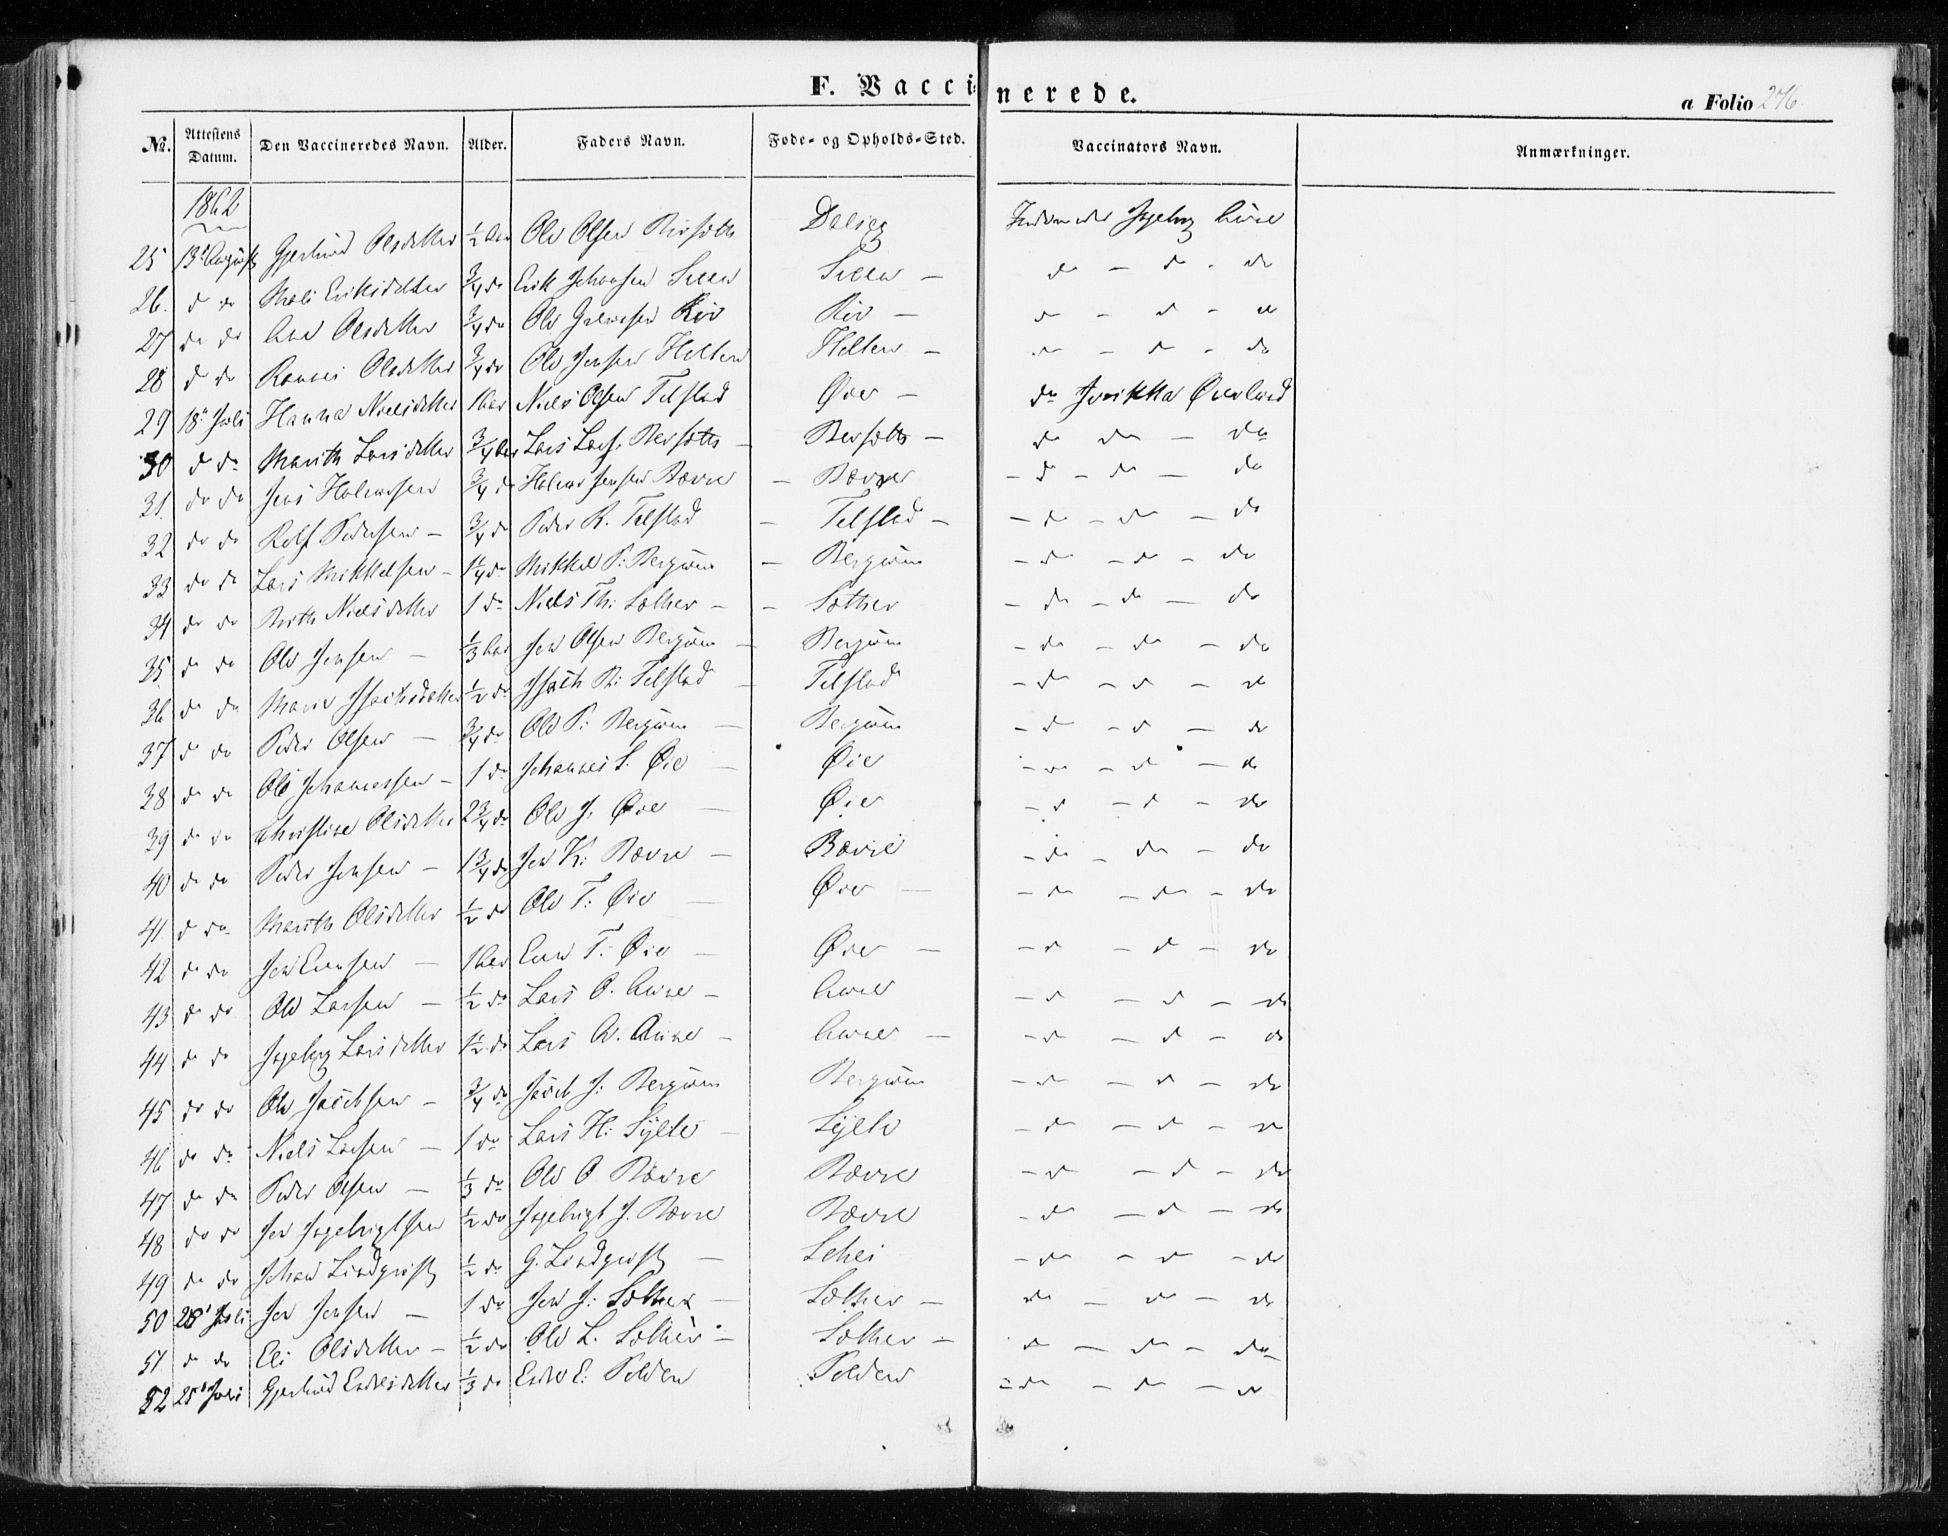 F. Vaccinerede.
a Folio 276
№. Attestens Datum. Den Vaccineredes Navn. Alder. Faders Navn. Føde- og Opholds-Sted. Vaccinators Navn. Anmærkninger.
1862
25 13d August Gjertrud Olsdatter 1/2 Aar Ole Olsen Ingeborg Aune
26. d do Mali Eriksdatter 3/4 do Erik Johansen Sveen Sveen — do — do - do
27 do do Ane Olsdatter 3/4 do Ole Halvorsen Riv Riv — do - do - do
28 d do Olsdatter 3/4 do Ole Jonsen Holten Holten — do - do - do
29 18d Juli Hanna Nielsdatter 1 Aar Niels Olsen Telstad Øie — do Øverland
30 d do Marith Larsdatter 3/4 Aar Lars Lars. — do do — do
31. do do Jens Halvorsen 3/4 do Halvor Jensen Bævre — Bævre — do — do — do
32 do do Rolf Pedersen — 3/4 do Peder R. Telstad — Telstad — — do — do — do
33 do do Lars Mikkelsen — 1 1/4 do Mikkel P: Bergum — Bergum — do — do — do
34 do do Berith Nielsdatter 1 do Niels Th: Sæther — — Sæther — do — do — do
35 do do Ole Jonsen — 1/3 Aar Jon Olsen Bergum — Bergum — do — do — do
36 do do Marie 1/2 do Telstad — Telstad — do — do — do
37 d do Peder Olsen — 3/4 do Ole P: Bergum — Bergum — do — do — do
38 do do Ole Johannessen — 1 do Johannes S. Øie — Øie — do — do — do
39 do do Christine Olsdatter 2 3/4 do Ole J. Øie — Øie — do — do — do
40 do do Peder Jonsen — 1 3/4 do Jon K: Bævre — Bævre — do — do — do
41. d do Marith Olsdatter 1/2 do Ole T: Øie — Øie — — do — do — do
42 do do Jon Ensen — 1 Aar T: Øie — Øie — — do — do — do
43 do do Ole Larsen — 1/2 do Lars O. Aune — Aune — do — do — do
44 do do Ingeborg Larsdatter 1 1/2 do Lars O. Aune — Aune — — do — do — do
45 do do Ole Jacobsen — 3/4 do Jacob J: Bergum Bergum — do — do — do
46 do do Niels Larsen — 1 do Lars H: Sylte — Sylte — do — do — do
47 do do Peder Olsen — 1/3 do Ole O Bævre Bævre — do — do — do
48 do do Jon Ingebrigtsen 1/2 do Ingebrigt J. Bævre Bævre — do — do — do
49 do do Johan Lindqvist 1/2 do G. Lindqvist — — do — do — do
50 25d Juli Jon Jonsen — 1 do Jon J: Sæther — Sæther — do — do — do
51 do do Eli Olsdatter — 1/2 do Ole L. Sæther — Sæther — do — do — do
52 25d Juli Gjertrud 1/3 do E: Polden Polden — do — do — do